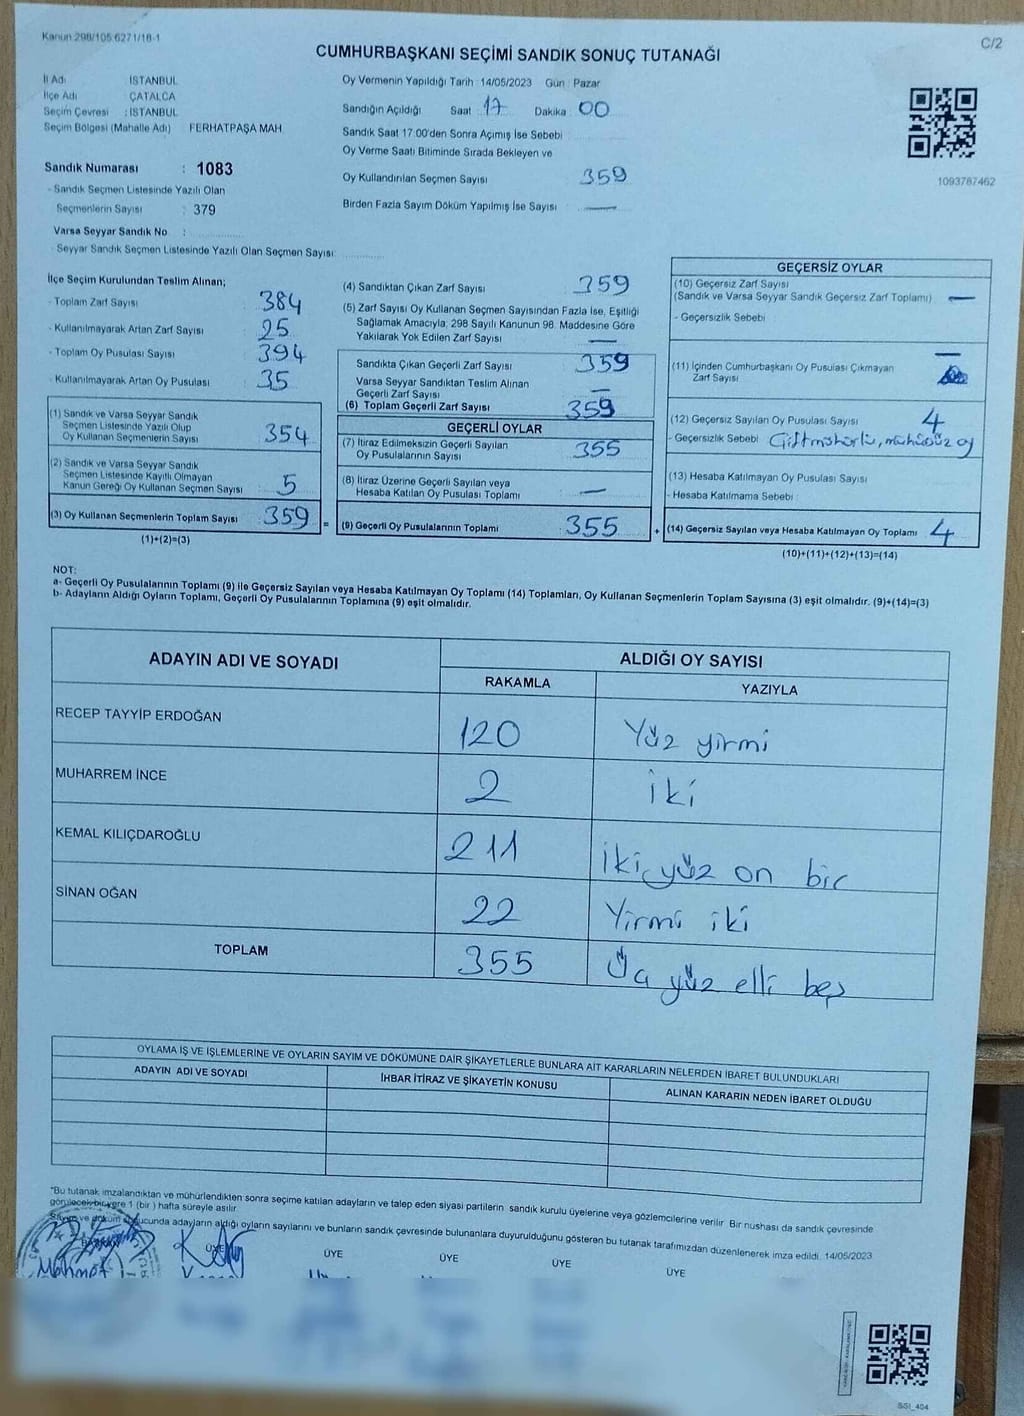 Kanun 298/105 6271/18-1
C/2
CUMHURBAŞKANI SEÇİMİ SANDIK SONUÇ TUTANAĞI
İl Adı İSTANBUL
İlçe Adı ÇATALCA
Seçim Çevresi : İSTANBUL
Seçim Bölgesi (Mahalle Adı) FERHATPAŞA MAH
Sandık Numarası : 1083
- Sandık Seçmen Listesinde Yazılı Olan
Seçmenlerin Sayısı : 379
Varsa Seyyar Sandık No :
- Seyyar Sandık Seçmen Listesinde Yazılı Olan Seçmen Sayısı:
Oy Vermenin Yapıldığı Tarih : 14/05/2023 Gün : Pazar
Sandığın Açıldığı Saat 17 Dakika 00
Sandık Saat 17:00'den Sonra Açımış İse Sebebi
Oy Verme Saati Bitiminde Sırada Bekleyen ve
Oy Kullandırılan Seçmen Sayısı 359
Birden Fazla Sayım Döküm Yapılmış İse Sayısı —
1093787462
İlçe Seçim Kurulundan Teslim Alınan;
- Toplam Zarf Sayısı 384
- Kullanılmayarak Artan Zarf Sayısı 25
- Toplam Oy Pusulası Sayısı 394
- Kullanılmayarak Artan Oy Pusulası 35
(1) Sandık ve Varsa Seyyar Sandık
Seçmen Listesinde Yazılı Olup
Oy Kullanan Seçmenlerin Sayısı 354
(2) Sandık ve Varsa Seyyar Sandık
Seçmen Listesinde Kayıtlı Olmayan
Kanun Gereği Oy Kullanan Seçmen Sayısı 5
(3) Oy Kullanan Seçmenlerin Toplam Sayısı 359 =
(1)+(2)=(3)
(4) Sandıktan Çıkan Zarf Sayısı 359
(5) Zarf Sayısı Oy Kullanan Seçmen Sayısından Fazla İse, Eşitliği
Sağlamak Amacıyla, 298 Sayılı Kanunun 98. Maddesine Göre
Yakılarak Yok Edilen Zarf Sayısı —
Sandıkta Çıkan Geçerli Zarf Sayısı 359
Varsa Seyyar Sandıktan Teslim Alınan
Geçerli Zarf Sayısı —
(6) Toplam Geçerli Zarf Sayısı 359
GEÇERLİ OYLAR
(7) İtiraz Edilmeksizin Geçerli Sayılan
Oy Pusulalarının Sayısı 355
(8) İtiraz Üzerine Geçerli Sayılan veya
Hesaba Katılan Oy Pusulası Toplamı —
(9) Geçerli Oy Pusulalarının Toplamı 355 +
GEÇERSİZ OYLAR
(10) Geçersiz Zarf Sayısı
(Sandık ve Varsa Seyyar Sandık Geçersiz Zarf Toplamı) —
- Geçersizlik Sebebi
(11) İçinden Cumhurbaşkanı Oy Pusulası Çıkmayan —
Zarf Sayısı
(12) Geçersiz Sayılan Oy Pusulası Sayısı 4
- Geçersizlik Sebebi Çift mühürlü, mühürsüz oy
(13) Hesaba Katılmayan Oy Pusulası Sayısı
- Hesaba Katılmama Sebebi
(14) Geçersiz Sayılan veya Hesaba Katılmayan Oy Toplamı 4
(10)+(11)+(12)+(13)=(14)
NOT:
a- Geçerli Oy Pusulalarının Toplamı (9) ile Geçersiz Sayılan veya Hesaba Katılmayan Oy Toplamı (14) Toplamları, Oy Kullanan Seçmenlerin Toplam Sayısına (3) eşit olmalıdır. (9)+(14)=(3)
b- Adayların Aldığı Oyların Toplamı, Geçerli Oy Pusulalarının Toplamına (9) eşit olmalıdır.
ADAYIN ADI VE SOYADI
ALDIĞI OY SAYISI
RAKAMLA YAZIYLA
RECEP TAYYİP ERDOĞAN 120 Yüz yirmi
MUHARREM İNCE 2 iki
KEMAL KILIÇDAROĞLU 211 iki yüz on bir
SİNAN OĞAN 22 Yirmi iki
TOPLAM 355 Üç yüz elli beş
OYLAMA İŞ VE İŞLEMLERİNE VE OYLARIN SAYIM VE DÖKÜMÜNE DAİR ŞİKAYETLERLE BUNLARA AİT KARARLARIN NELERDEN İBARET BULUNDUKLARI
ADAYIN ADI VE SOYADI İHBAR İTİRAZ VE ŞİKAYETİN KONUSU ALINAN KARARIN NEDEN İBARET OLDUĞU
*Bu tutanak imzalandıktan ve mühürlendikten sonra seçime katılan adayların ve talep eden siyasi partilerin sandık kurulu üyelerine veya gözlemcilerine verilir. Bir nushası da sandık çevresinde
görülecek bir yere 1 (bir) hafta süreyle asılır
Sayım ve döküm sonucunda adayların aldığı oyların sayılarını ve bunların sandık çevresinde bulunanlara duyurulduğunu gösteren bu tutanak tarafımızdan düzenlenerek imza edildi. 14/05/2023
ÜYE ÜYE ÜYE ÜYE ÜYE
Mehmet
SSI_404